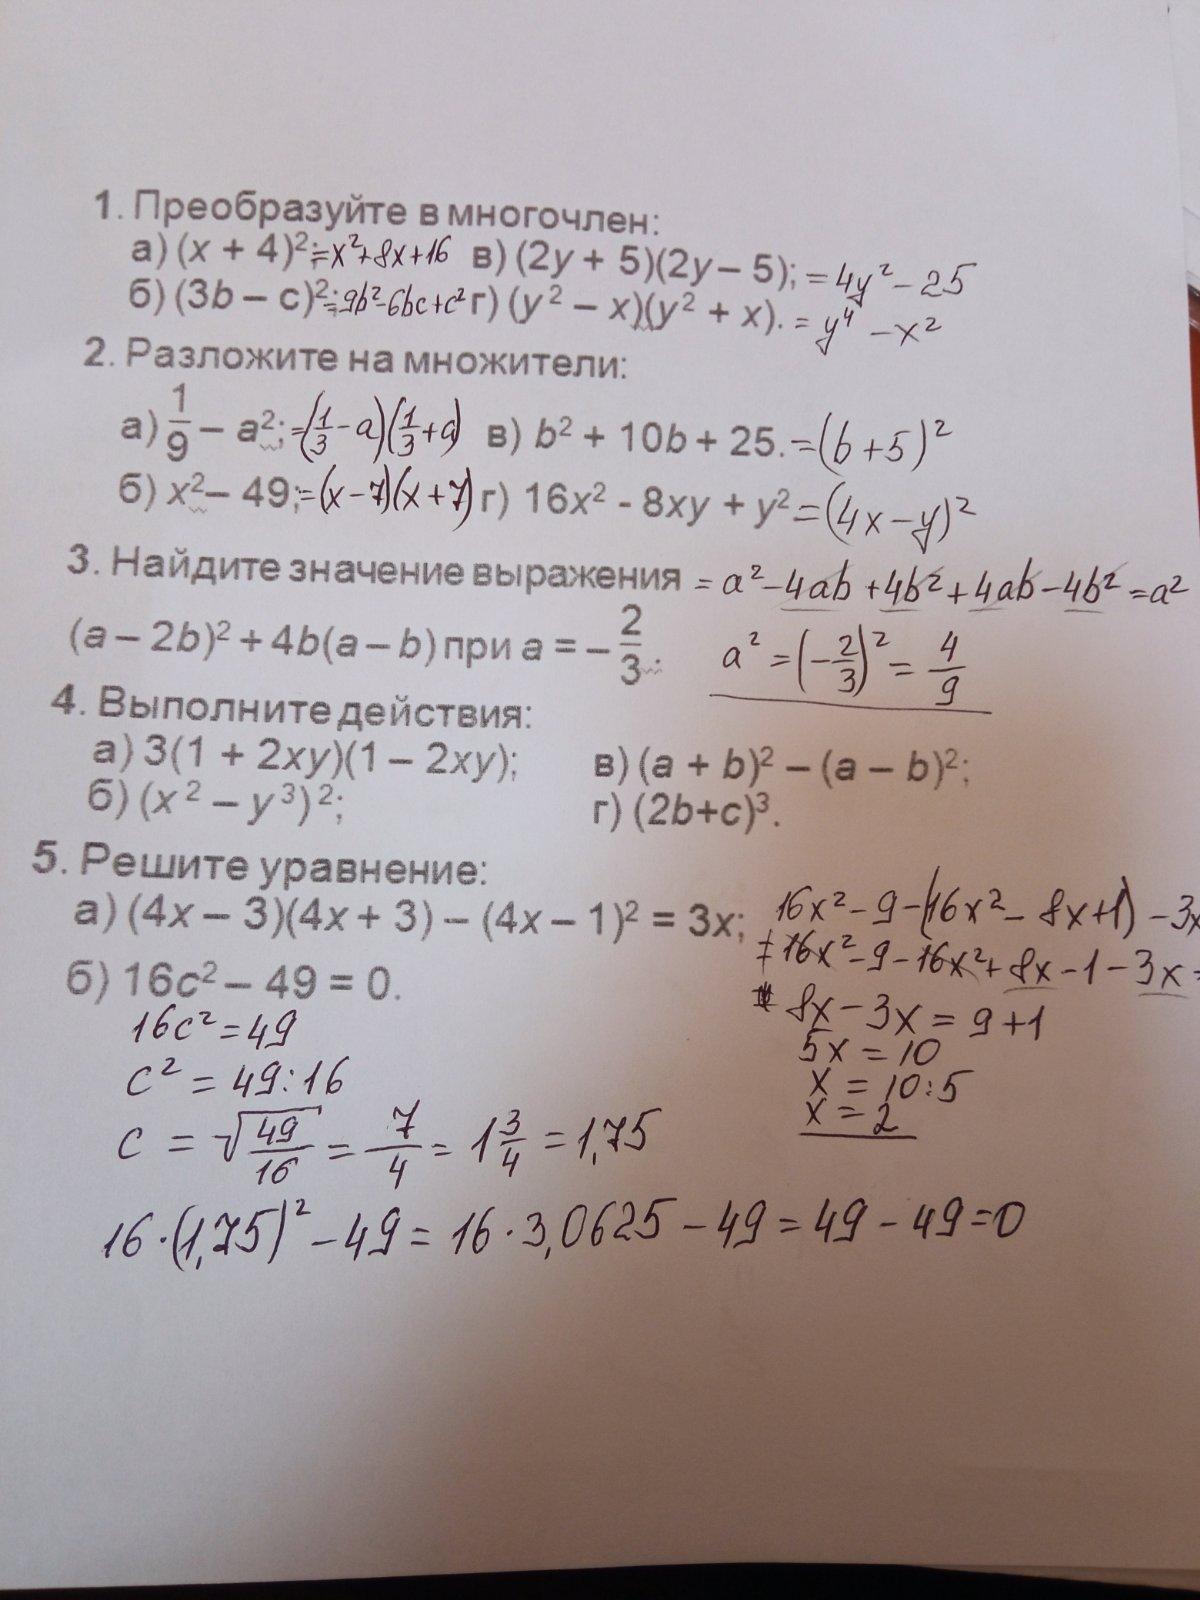 1. Преобразуйте в многочлен:
а) (x + 4)²; =x²+8x+16 в) (2y + 5)(2y – 5); = 4y² – 25
б) (3b – c)²; =9b²-6bc+c² г) (y² – x)(y² + x). = y⁴ – x²
2. Разложите на множители:
а) 1/9 – a²; =(1/3 - a)(1/3 + a) в) b² + 10b + 25. =(b+5)²
б) x² – 49; =(x-7)(x+7) г) 16x² - 8xy + y² =(4x-y)²
3. Найдите значение выражения = a² - 4ab + 4b² + 4ab - 4b² = a²
(a – 2b)² + 4b(a – b) при a = – 2/3. a² = (-2/3)² = 4/9
4. Выполните действия:
а) 3(1 + 2xy)(1 – 2xy); в) (a + b)² – (a – b)²;
б) (x² – y³)²; г) (2b+c)³.
5. Решите уравнение:
а) (4x – 3)(4x + 3) – (4x – 1)² = 3x; 16x² - 9 - (16x² - 8x+1) - 3x
= 16x² - 9 - 16x² + 8x - 1 - 3x =
б) 16c² – 49 = 0. 8x - 3x = 9+1
16c² = 49 5x = 10
c² = 49:16 x = 10:5
x = 2
c = √49/16 = 7/4 = 1 3/4 = 1,75
16·(1,75)² - 49 = 16·3,0625 - 49 = 49 - 49 = 0